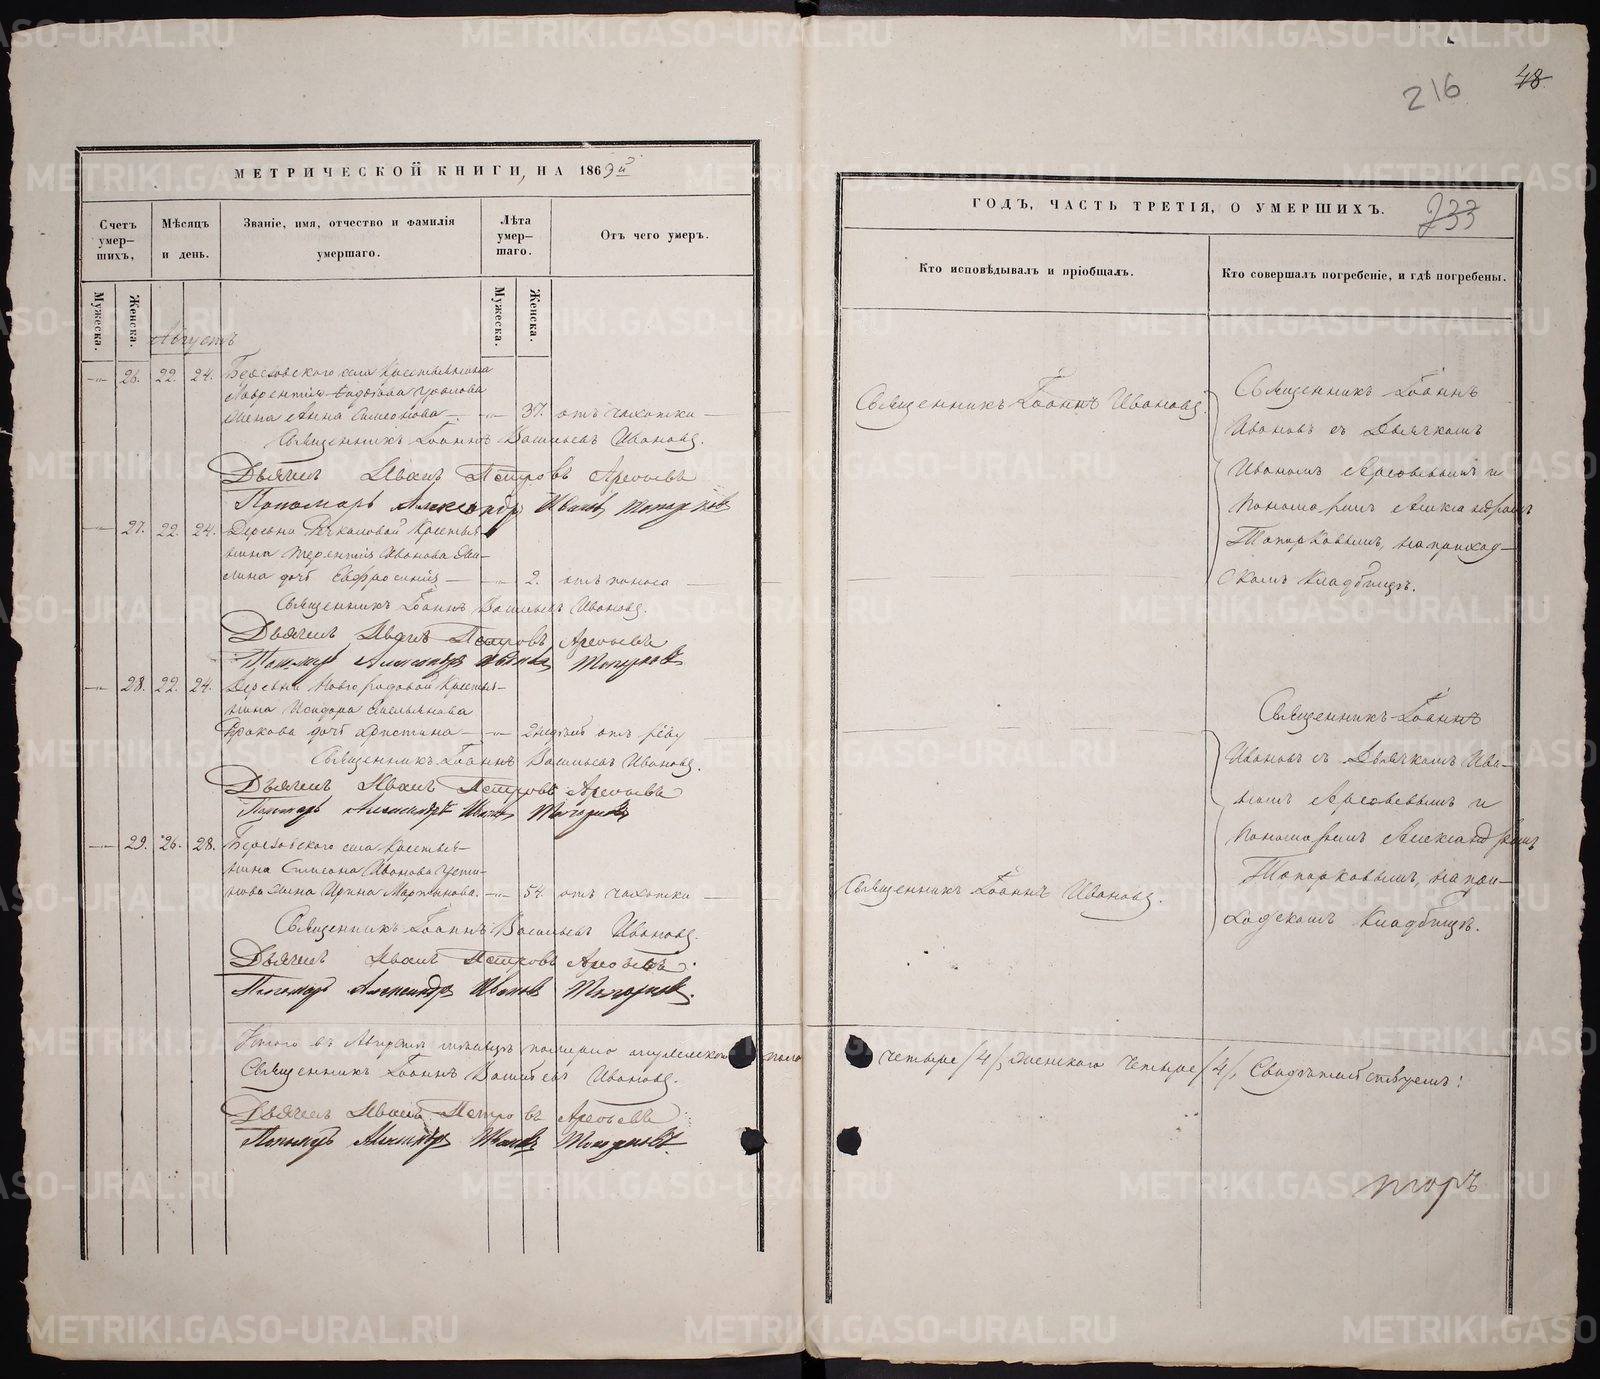 216
48
МЕТРИЧЕСКОЙ КНИГИ, НА 1869й
ГОДЪ, ЧАСТЬ ТРЕТІЯ, О УМЕРШИХЪ.
733
Счетъ умер-шихъ,
Мѣсяцъ и день.
Званіе, имя, отчество и фамилія умершаго.
Лѣта умер-шаго.
Отъ чего умеръ.
Кто исповѣдывалъ и пріобщалъ.
Кто совершалъ погребеніе, и гдѣ погребены.
Мужеска.
Женска.
Мужеска.
Женска.
Августъ
26. 22. 24. Березовского села Крестьянина
Лаврентія
жена Анна Симеонова — 37. отъ чахотки
Священникъ Іоаннъ Васильевъ Ивановъ.
Дьячекъ Иванъ Петровъ Арефьевъ
Пономарь Александръ Ивановъ Топорковъ
27. 22. 24. Деревни Крестья-
нина Терентія Иванова
дочь Евфросинія — 2. отъ поноса
Священникъ Іоаннъ Васильевъ Ивановъ.
Дьячекъ Иванъ Петровъ Арефьевъ
Пономарь Александръ Ивановъ Топорковъ
28. 22. 24. Деревни Новгородовой Крестья-
нина Исидора Емельянова
дочь Христина — 2 недѣлей отъ рёву
Священникъ Іоаннъ Васильевъ Ивановъ.
Дьячекъ Иванъ Петровъ Арефьевъ
Пономарь Александръ Ивановъ Топорковъ
29. 26. 28. Березовского села Крестья-
нина Симеона Иванова Усти-
нова жена Ирина Мартинова. 54. отъ чахотки
Священникъ Іоаннъ Васильевъ Ивановъ.
Дьячекъ Иванъ Петровъ Арефьевъ
Пономарь Александръ Ивановъ Топорковъ.
Итого въ Августѣ мѣсяцѣ померло мужескаго пола четыре /4/, женского четыре /4/, Свидѣтельствуемъ:
Священникъ Іоаннъ Васильевъ Ивановъ.
Дьячекъ Иванъ Петровъ Арефьевъ
Пономарь Александръ Ивановъ Топорковъ.
Священникъ Іоаннъ Ивановъ.
Священникъ Іоаннъ
Ивановъ съ Дьячкомъ
Иваномъ Арефьевымъ и
Пономаремъ Александромъ
Топорковымъ, на приход-
скомъ Кладбищѣ.
Священникъ Іоаннъ
Ивановъ съ Дьячкомъ Ива-
номъ Арефьевымъ и
Пономаремъ Александромъ
Топорковымъ, на при-
ходскомъ Кладбищѣ.
Священникъ Іоаннъ Ивановъ.
METRIKI.GASO-URAL.RU